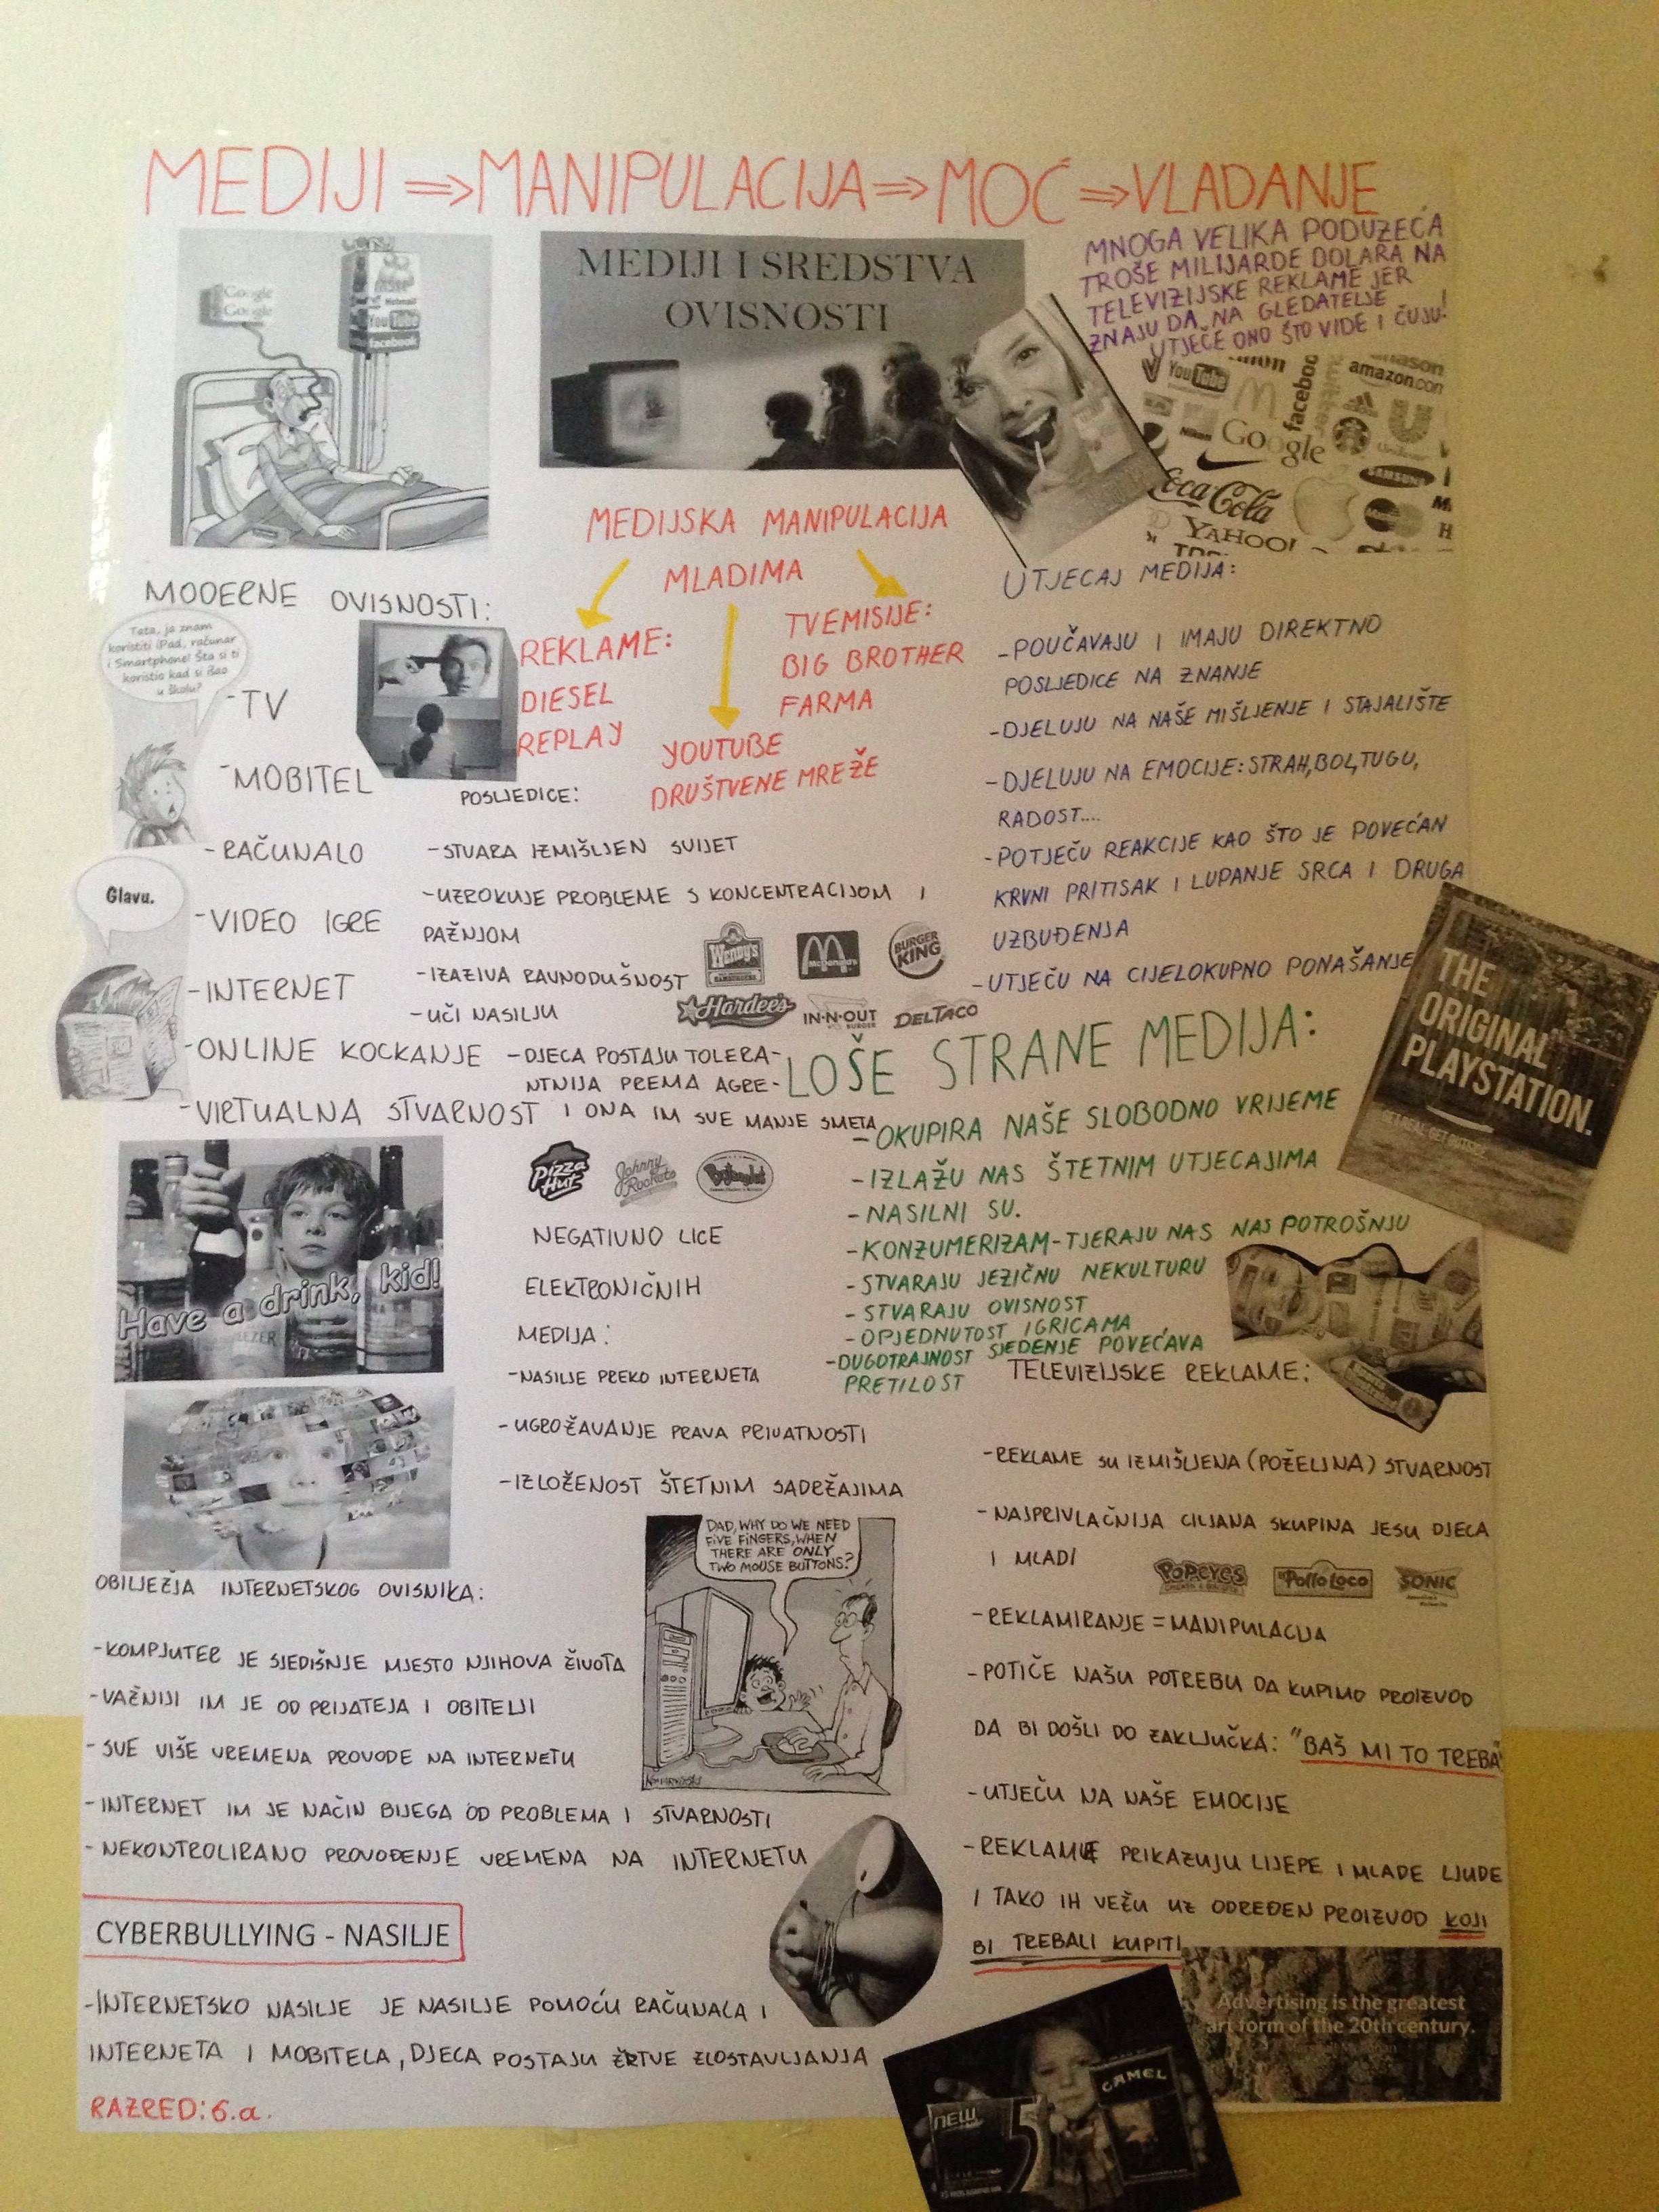 MEDIJI ⇒ MANIPULACIJA ⇒ MOĆ ⇒ VLADANJE
MNOGA VELIKA PODUZEĆA
TROŠE MILIJARDE DOLARA NA
TELEVIZIJSKE REKLAME JER
ZNAJU DA NA GLEDATELJE
UTJEČE ONO ŠTO VIDE I ČUJU!
Google
Google
Hotmail
YouTube
facebook
MEDIJI I SREDSTVA
OVISNOSTI
YouTube
facebook
amazon.com
Nikon
Google
Unilever
SAMSUNG
Coca Cola
YAHOO!
MEDIJSKA MANIPULACIJA
MLADIMA
REKLAME:
DIESEL
REPLAY
YOUTUBE
DRUŠTVENE MREŽE
TV EMISIJE:
BIG BROTHER
FARMA
MODERNE OVISNOSTI:
Tata, ja znam
koristiti iPad, računar
i Smartphone! Šta si ti
koristio kad si išao
u školu?
Glavu.
-TV
-MOBITEL
-RAČUNALO
-VIDEO IGRE
-INTERNET
-ONLINE KOCKANJE
-VIRTUALNA STVARNOST
POSLJEDICE:
-STVARA IZMIŠLJEN SVIJET
-UZROKUJE PROBLEME S KONCENTRACIJOM I
PAŽNJOM
-IZAZIVA RAVNODUŠNOST
-UČI NASILJU
-DJECA POSTAJU TOLERA-
NTNIJA PREMA AGRE-
I ONA IM SVE MANJE SMETA
Wendy's
McDonald's
BURGER
KING
Hardee's
IN-N-OUT
BURGER
DEL TACO
UTJECAJ MEDIJA:
-POUČAVAJU I IMAJU DIREKTNO
POSLJEDICE NA ZNANJE
-DJELUJU NA NAŠE MIŠLJENJE I STAJALIŠTE
-DJELUJU NA EMOCIJE: STRAH, BOL, TUGU,
RADOST....
-POTJEČU REAKCIJE KAO ŠTO JE POVEĆAN
KRVNI PRITISAK I LUPANJE SRCA I DRUGA
UZBUĐENJA
-UTJEČU NA CIJELOKUPNO PONAŠANJE
THE
ORIGINAL
PLAYSTATION.
LOŠE STRANE MEDIJA:
-OKUPIRA NAŠE SLOBODNO VRIJEME
-IZLAŽU NAS ŠTETNIM UTJECAJIMA
-NASILNI SU.
-KONZUMERIZAM-TJERAJU NAS NAS POTROŠNJU
-STVARAJU JEZIČNU NEKULTURU
-STVARAJU OVISNOST
-OPJEDNUTOST IGRICAMA
-DUGOTRAJNOST SJEDENJE POVEĆAVA
PRETILOST
Have a drink, kid!
Pizza
Hut
Johnny
Rockets
Bojangles'
NEGATIVNO LICE
ELEKTRONIČNIH
MEDIJA:
-NASILJE PREKO INTERNETA
-UGROŽAVANJE PRAVA PRIVATNOSTI
-IZLOŽENOST ŠTETNIM SADRŽAJIMA
DAD, WHY DO WE NEED
FIVE FINGERS, WHEN
THERE ARE ONLY
TWO MOUSE BUTTONS?
TELEVIZIJSKE REKLAME:
-REKLAME SU IZMIŠLJENA (POŽELJNA) STVARNOST
-NAJPRIVLAČNIJA CILJANA SKUPINA JESU DJECA
I MLADI
POPEYES
El Pollo Loco
SONIC
-REKLAMIRANJE = MANIPULACIJA
-POTIČE NAŠU POTREBU DA KUPIMO PROIZVOD
DA BI DOŠLI DO ZAKLJUČKA: "BAŠ MI TO TREBA"
-UTJEČU NA NAŠE EMOCIJE
-REKLAME PRIKAZUJU LIJEPE I MLADE LJUDE
I TAKO IH VEŽU UZ ODREĐEN PROIZVOD KOJI
BI TREBALI KUPITI
OBILJEŽJA INTERNETSKOG OVISNIKA:
-KOMPJUTER JE SJEDIŠNJE MJESTO NJIHOVA ŽIVOTA
-VAŽNIJI IM JE OD PRIJATEJA I OBITELJI
-SVE VIŠE VREMENA PROVODE NA INTERNETU
-INTERNET IM JE NAČIN BIJEGA OD PROBLEMA I STVARNOSTI
-NEKONTROLIRANO PROVOĐENJE VREMENA NA INTERNETU
CYBERBULLYING - NASILJE
-INTERNETSKO NASILJE JE NASILJE POMOĆU RAČUNALA I
INTERNETA I MOBITELA, DJECA POSTAJU ŽRTVE ZLOSTAVLJANJA
RAZRED: 6.a.
Advertising is the greatest
art form of the 20th century.
CAMEL
NEW
5